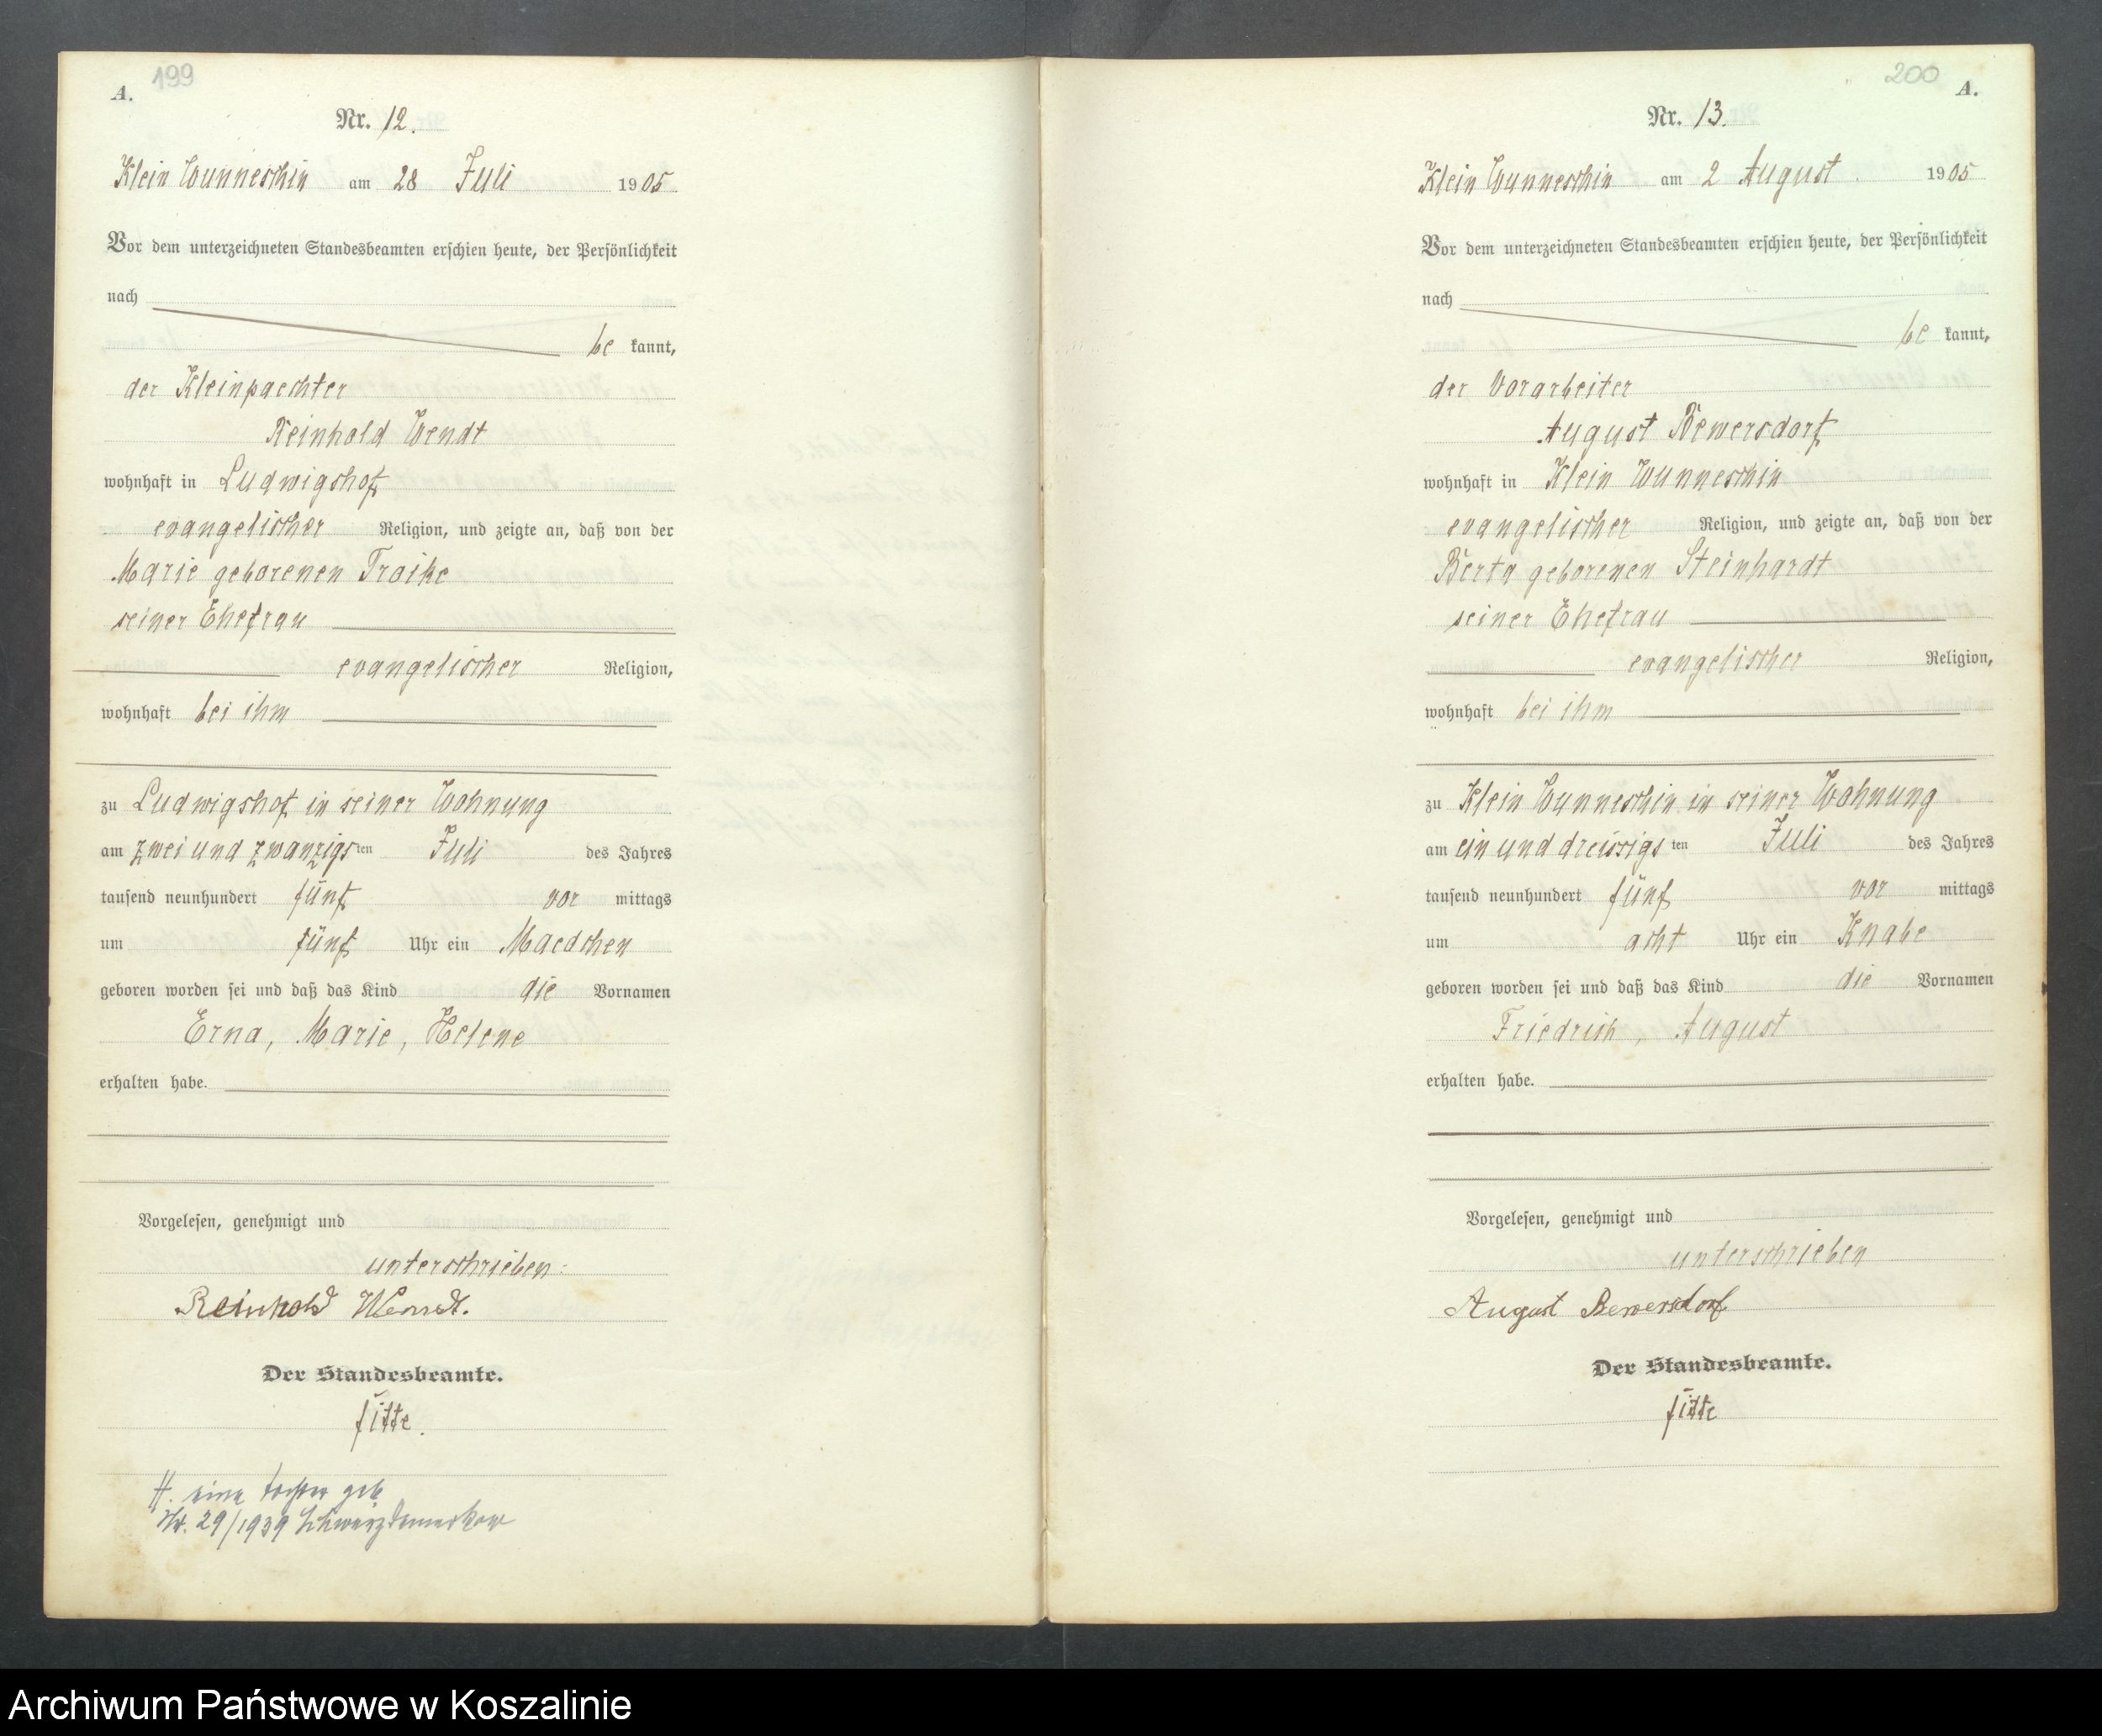 199
A.
Nr. 12.
Klein Wunneschin am 28 Juli 1905
Vor dem unterzeichneten Standesbeamten erschien heute, der Persönlichkeit
nach
be kannt,
der Kleinpaechter
Reinhold Wendt
wohnhaft in Ludwigshof
evangelischer Religion, und zeigte an, daß von der
Marie geborenen Troike
seiner Ehefrau
evangelischer Religion,
wohnhaft bei ihm
zu Ludwigshof in seiner Wohnung
am zwei und zwanzigsten Juli des Jahres
tausend neunhundert fünf vor mittags
um fünf Uhr ein Maedchen
geboren worden sei und daß das Kind die Vornamen
Erna, Marie, Helene
erhalten habe.
Vorgelesen, genehmigt und
unterschrieben:
Reinhold Wendt.
Der Standesbeamte.
fitte.
eine Tochter geb
Nr. 29/1939
200
A.
Nr. 13.
Klein Wunneschin am 2 August 1905
Vor dem unterzeichneten Standesbeamten erschien heute, der Persönlichkeit
nach
be kannt,
der Vorarbeiter
August Bewersdorf
wohnhaft in Klein Wunneschin
evangelischer Religion, und zeigte an, daß von der
Berta geborenen Steinhardt
seiner Ehefrau
evangelischer Religion,
wohnhaft bei ihm
zu Klein Wunneschin in seiner Wohnung
am ein und dreissigsten Juli des Jahres
tausend neunhundert fünf vor mittags
um acht Uhr ein Knabe
geboren worden sei und daß das Kind die Vornamen
Friedrich, August
erhalten habe.
Vorgelesen, genehmigt und
unterschrieben
August Bewersdorf
Der Standesbeamte.
fitte
Archiwum Państwowe w Koszalinie